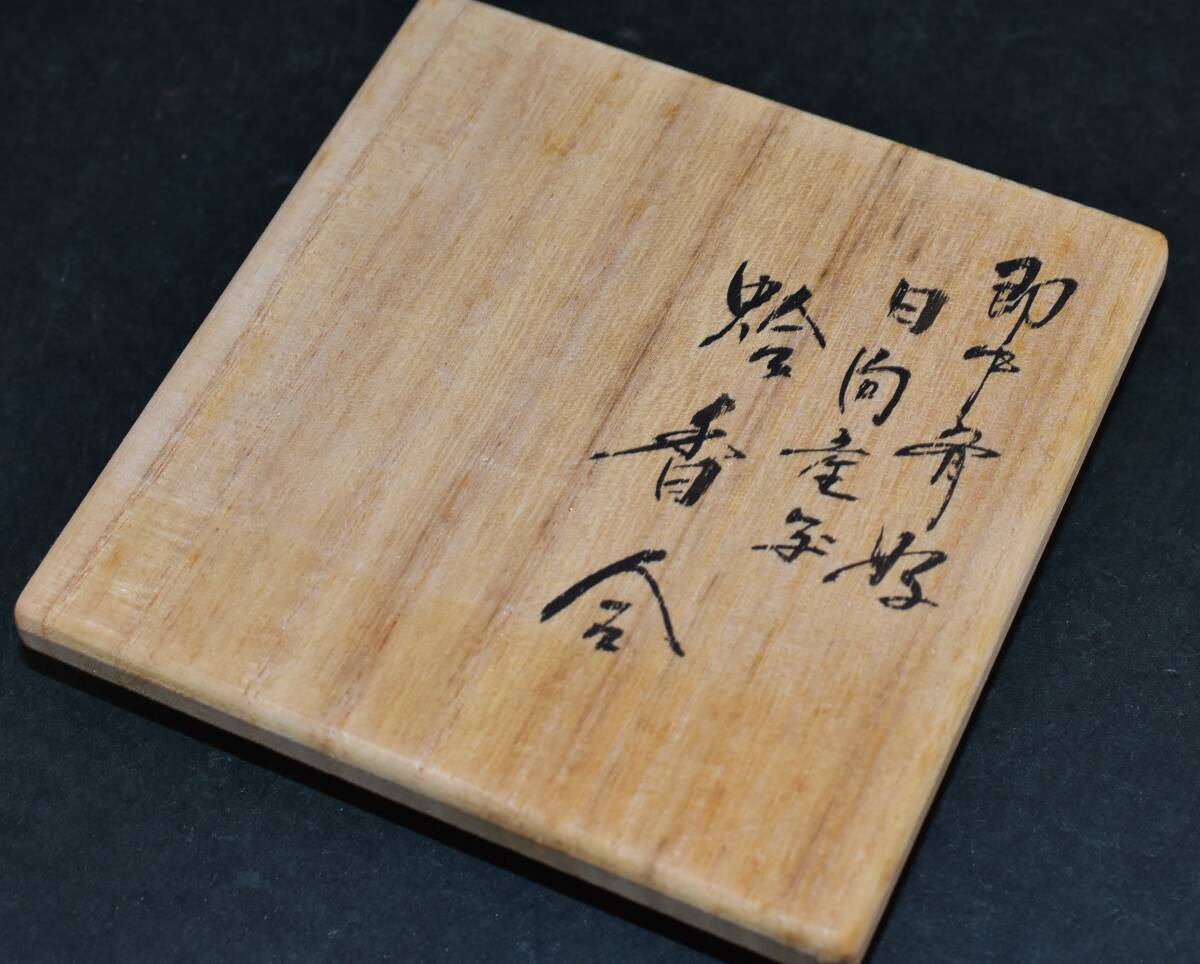 即中斎好
日向産
蛤香合